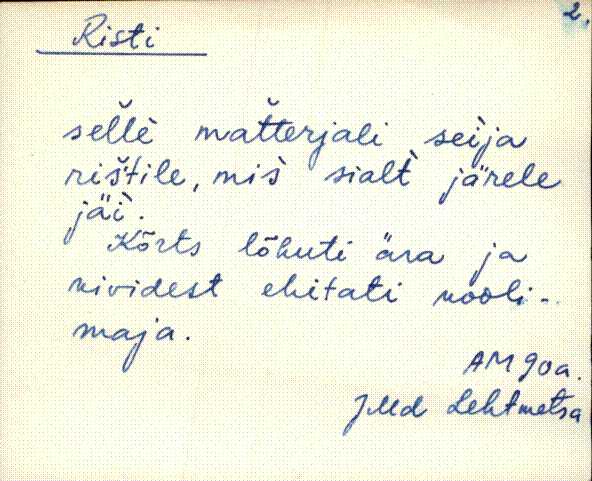 2.
Risti
sellè̬ mat̆terjali seìja
ris̆tile, mis̀ sialt̀ järele
jäì.
Kõrts lõhuti ära ja
kividest ehitati kooli-
maja.
AM 90a.
JMd Lehtmetsa